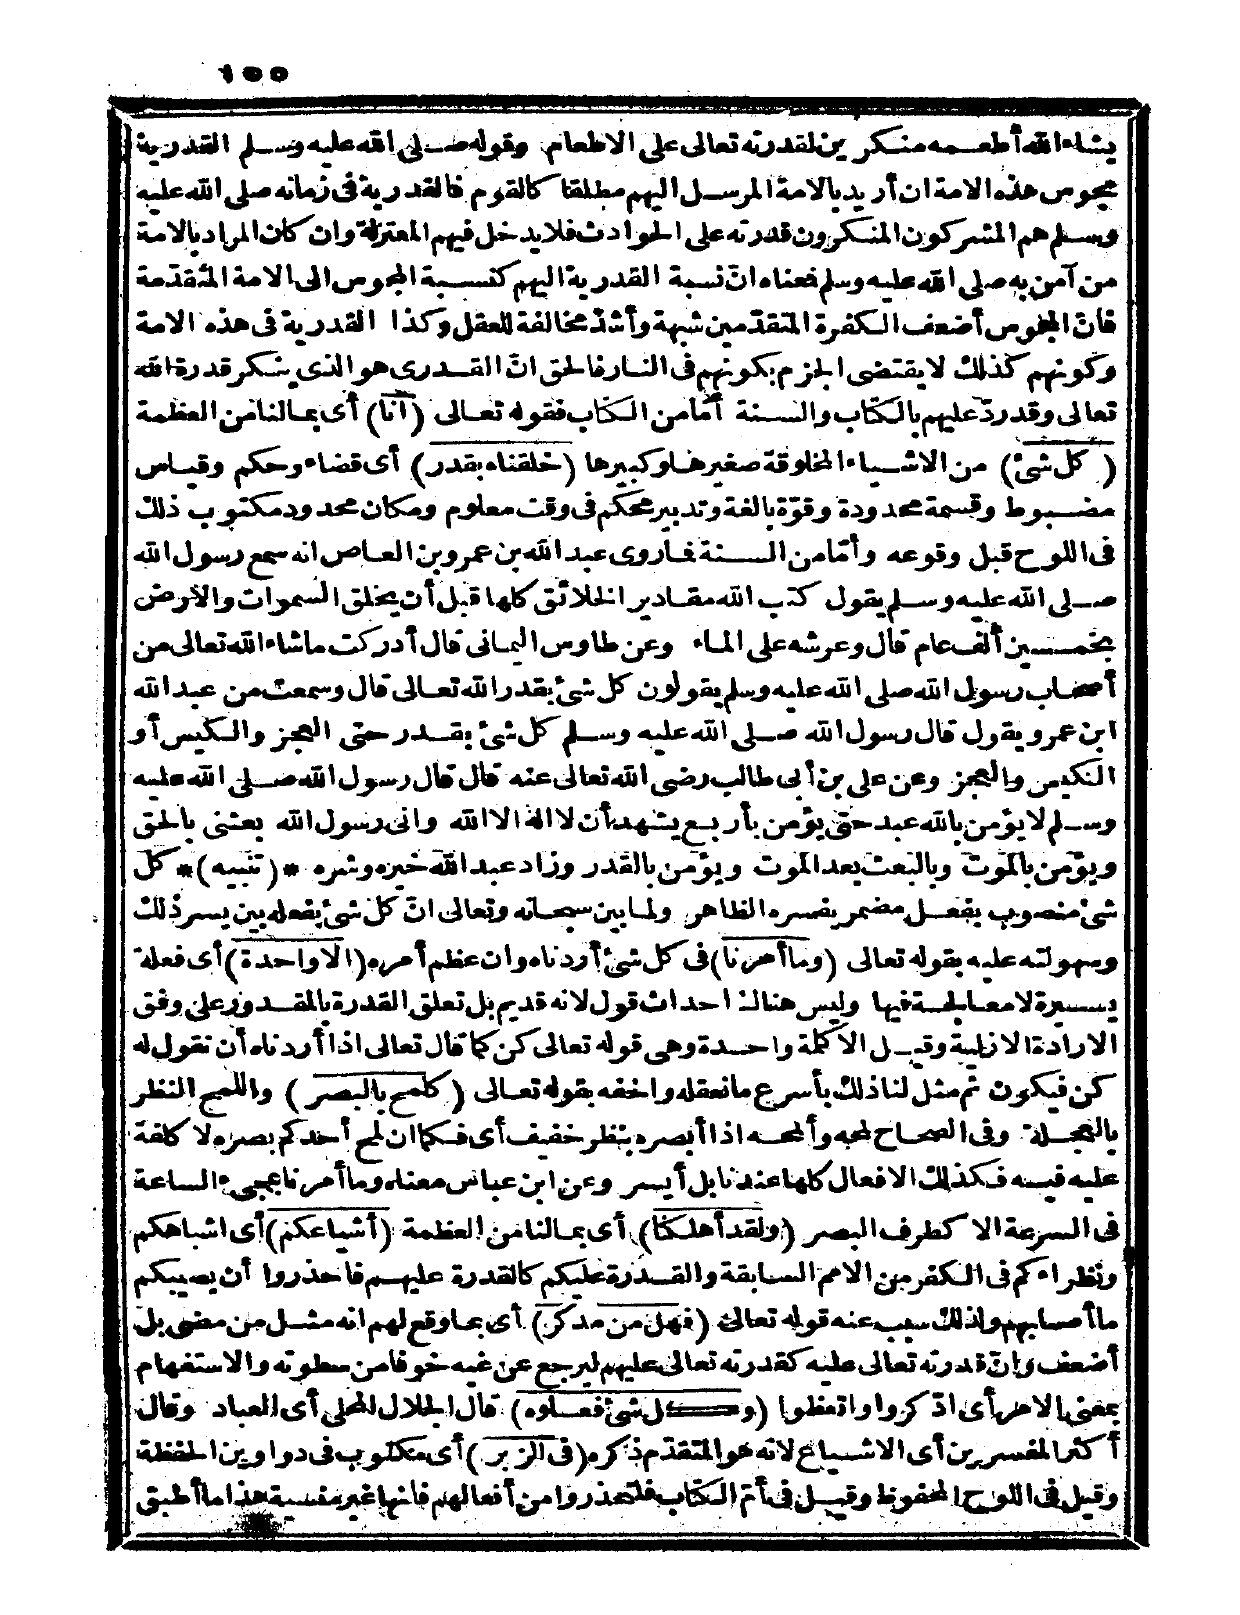 ١٥٥
يشاء الله أطعمه منكرين لقدرته تعالى على الاطعام وقوله صلى الله عليه وسلم القدرية
مجوس هذه الامة ان أريد بالامة المرسل اليهم مطلقا كالقوم فالقدرية فى زمانه صلى الله عليه
وسلم هم المشركون المنكرون قدرته على الحوادث فلا يدخل فيهم المعتزلة وان كان المراد بالامة
من آمن به صلى الله عليه وسلم فمعناه انّ نسبة القدرية اليهم كنسبة المجوس الى الامة المتقدّمة
فانّ المجوس أضعف الكفرة المتقدّمين شبهة وأشدّ مخالفة للعقل وكذا القدرية فى هذه الامة
وكونهم كذلك لا يقتضى الجزم بكونهم فى النار فالحق انّ القدرى هو الذى ينكر قدرة الله
تعالى وقد ردّ عليهم بالكتاب والسنة أمّا من الكتاب فقوله تعالى (انا) أى بمالنا من العظمة
(كل شئ) من الاشياء المخلوقة صغيرها وكبيرها (خلقناه بقدر) أى قضاء وحكم وقياس
مضبوط وقسمة محدودة وقوّة بالغة وتدبير محكم فى وقت معلوم ومكان محدود مكتوب ذلك
فى اللوح قبل وقوعه وأمّا من السنة فما روى عبد الله بن عمرو بن العاص انه سمع رسول الله
صلى الله عليه وسلم يقول كتب الله مقادير الخلائق كلها قبل أن يخلق السموات والارض
بخمسين ألف عام قال وعرشه على الماء وعن طاوس اليمانى قال أدركت ماشاء الله تعالى من
أصحاب رسول الله صلى الله عليه وسلم يقولون كل شئ بقدر الله تعالى قال وسمعت من عبد الله
ابن عمرو يقول قال رسول الله صلى الله عليه وسلم كل شئ بقدر حتى العجز والكيس أو
الكيس والعجز وعن على بن أبى طالب رضى الله تعالى عنه قال قال رسول الله صلى الله عليه
وسلم لا يؤمن بالله عبد حتى يؤمن بأربع يشهد أن لا اله الا الله وانى رسول الله بعثنى بالحق
ويؤمن بالموت وبالبعث بعد الموت ويؤمن بالقدر وزاد عبد الله خيره وشره *(تنبيه)* كل
شئ منصوب بفعل مضمر يفسره الظاهر ولما بين سبحانه وتعالى انّ كل شئ بفعله بين يسر ذلك
وسهولته عليه بقوله تعالى (وما أمرنا) فى كل شئ أردناه وان عظم أمره (الا واحدة) أى فعلة
يسيرة لا معالجة فيها وليس هناك احداث قول لانه قديم بل تعلق القدرة بالمقدور على وفق
الارادة الازلية وقيل الا كلمة واحدة وهى قوله تعالى كن كما قال تعالى اذا أردناه أن نقول له
كن فيكون ثم مثل لنا ذلك بأسرع ما نعقله واخفه بقوله تعالى (كلمح بالبصر) واللمح النظر
بالعجلة وفى الصحاح لمحه وألمحه اذا أبصره بنظر خفيف أى فكما ان لمح أحدكم ببصره لا كلفة
عليه فيه فكذلك الافعال كلها عندنا بل أيسر وعن ابن عباس معناه وما أمرنا بمجىء الساعة
فى السرعة الا كطرف البصر (ولقد أهلكنا) أى بمالنا من العظمة (أشياعكم) أى اشباهكم
ونظراءكم فى الكفر من الامم السابقة والقدرة عليكم كالقدرة عليهم فاحذروا أن يصيبكم
ما أصابهم ولذلك سبب عنه قوله تعالى (فهل من مدكر) أى بما وقع لهم انه مثل من مضى بل
أضعف وانّ قدرته تعالى عليه كقدرته تعالى عليهم ليرجع عن غيه خوفا من سطوته والاستفهام
بمعنى الامر أى اذكروا واتعظوا (وكل شئ فعلوه) قال الجلال المحلى أى العباد وقال
أكثر المفسرين أى الاشياع لانه هو المتقدّم ذكره (فى الزبر) أى مكتوب فى دواوين الحفظة
وقيل فى اللوح المحفوظ وقيل فى أمّ الكتاب فليحذروا من أفعالهم فانها غير منسية هذا ما أطبق